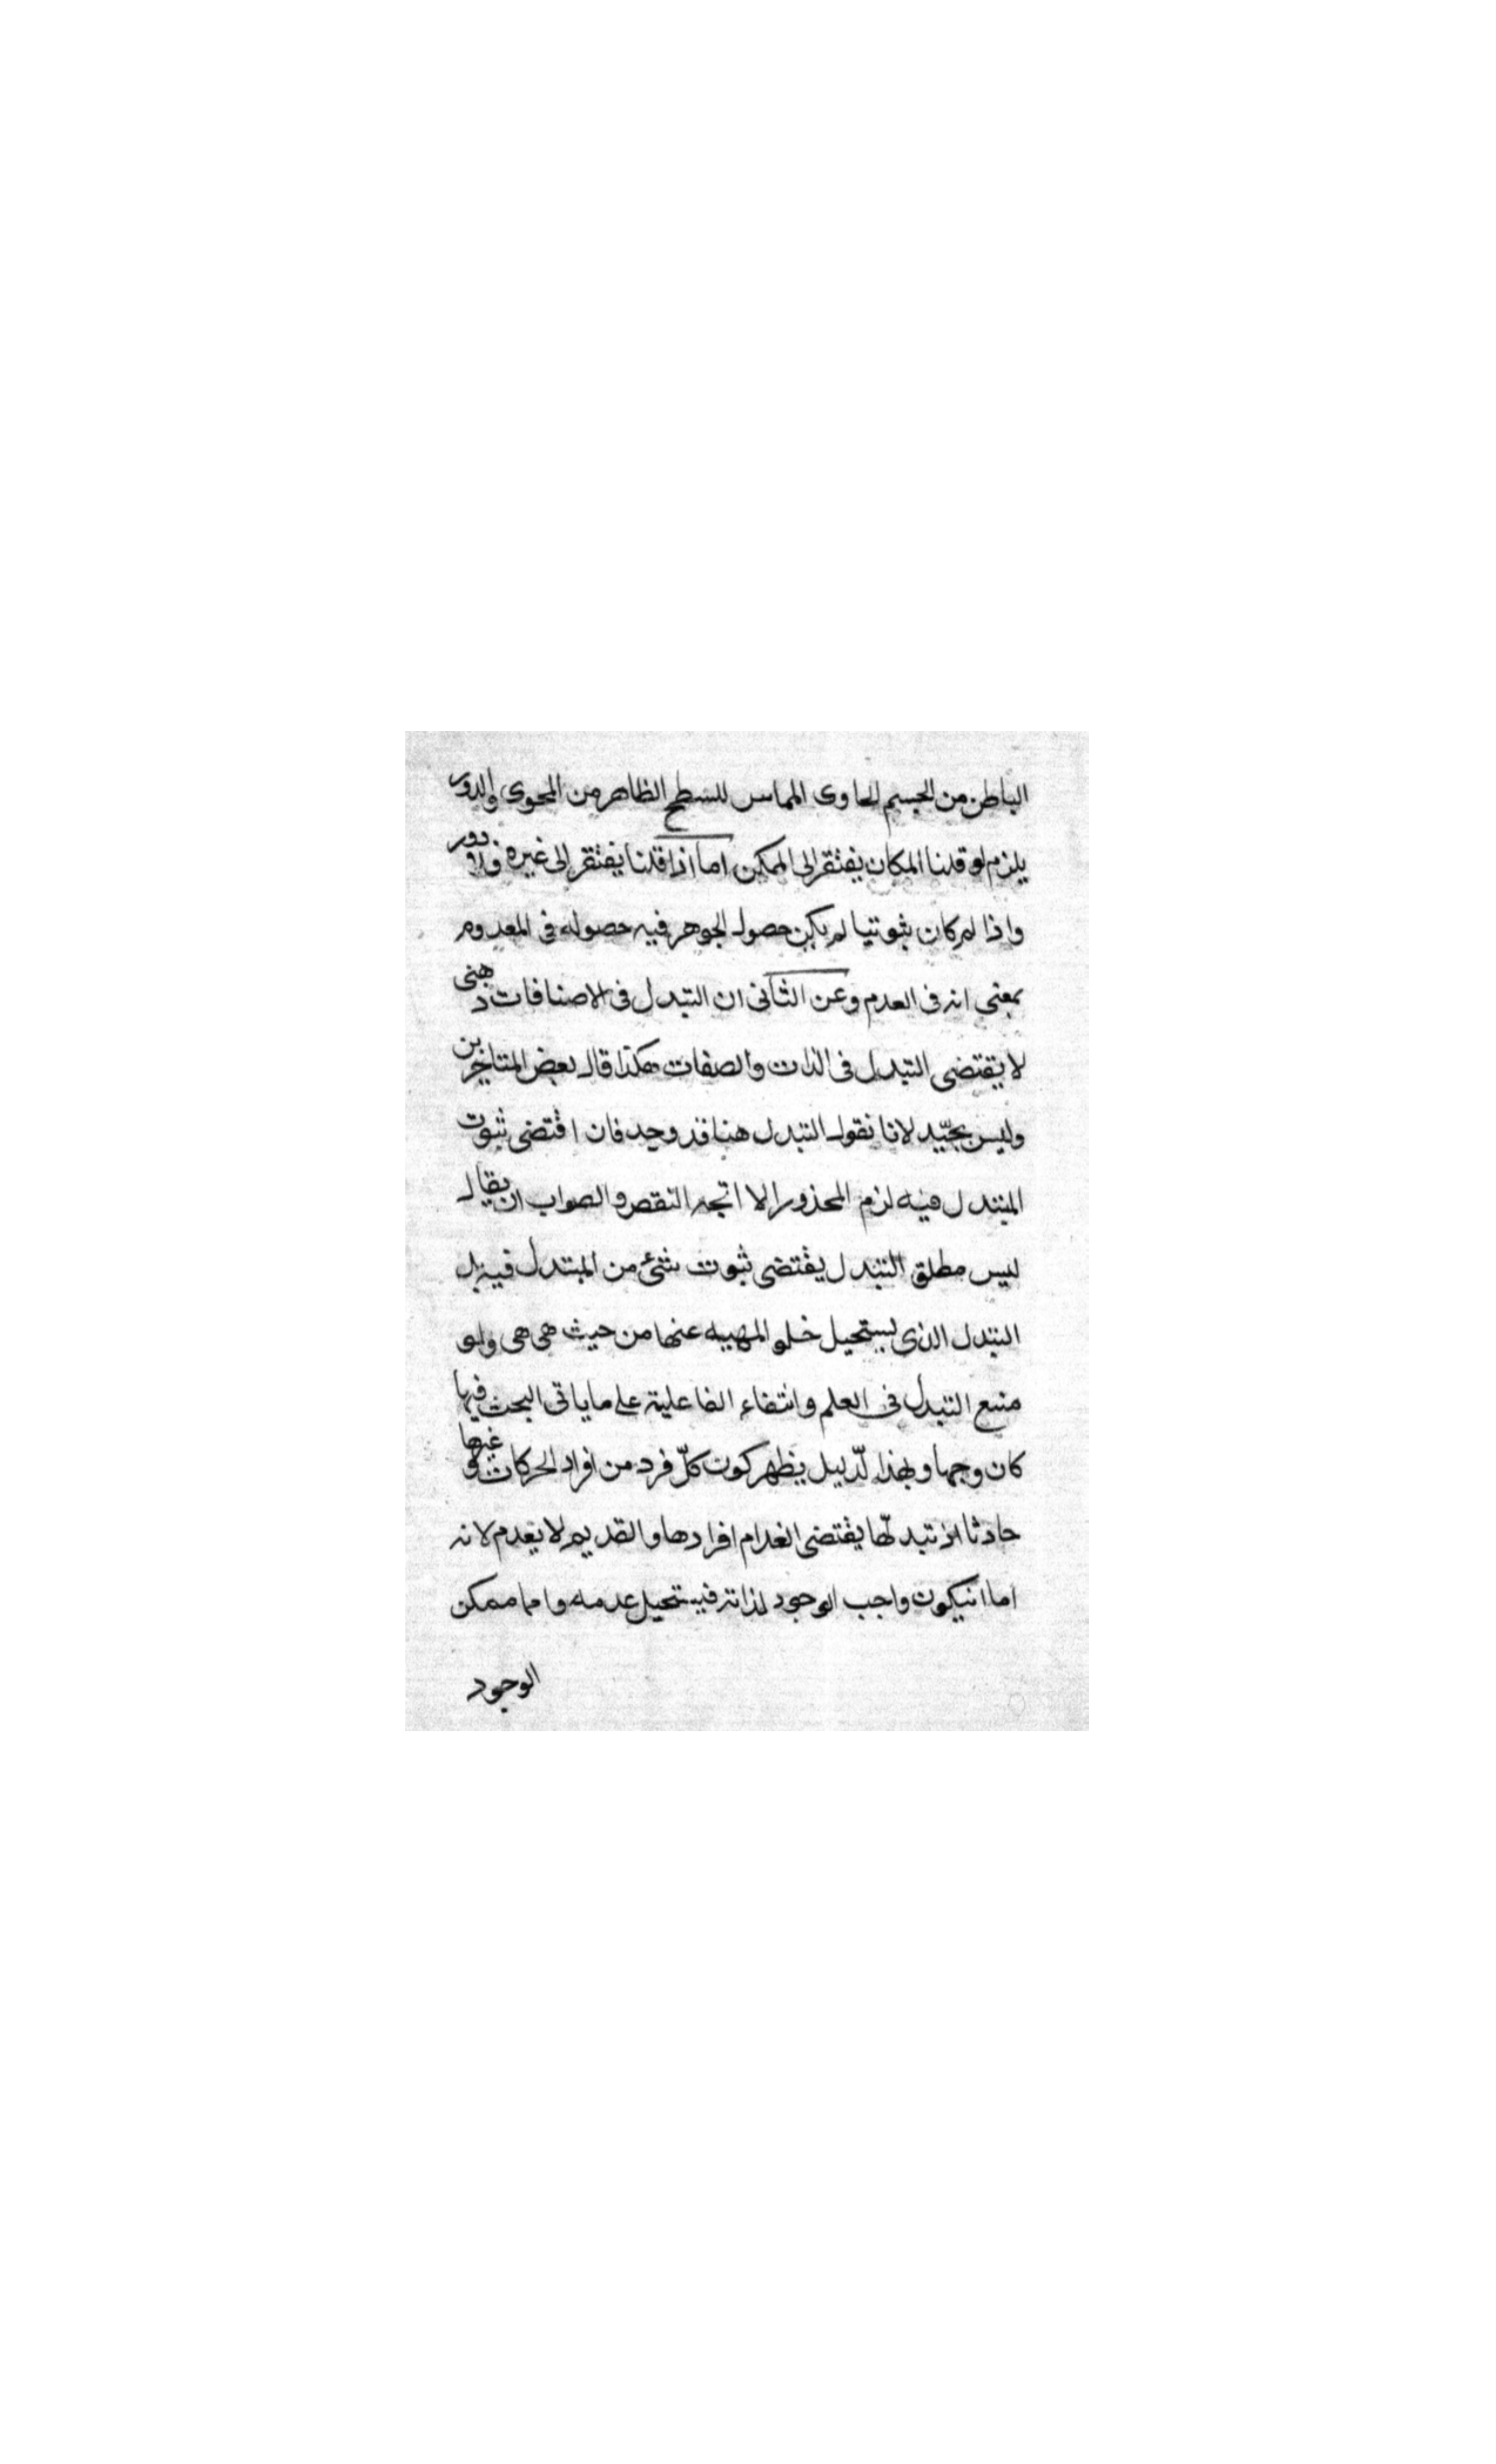 الباطن من الجسم الحاوى المماس للسطح الظاهر من المحوى والدور
يلزم لو قلنا المكان يفتقر الى الممكن اما اذا قلنا يفتقر الى غيره فلا دور
واذا لم كان ثبوتيا لم يكن حصول الجوهر فيه حصوله فى المعدوم
بمعنى انه فى العدم وعن الثانى ان التبدل فى الاضافات
لا يقتضى التبدل فى الذات والصفات هكذا قال بعض المتاخرين
وليس بجيّد لانا نقول التبدل هنا قد وجد فان اقتضى ثبوت
المتبدل فيه لزم المحذور الا اتجه النقض والصواب ان يقال
ليس مطلق التبدل يقتضى ثبوت شئ من المتبدل فيه بل
التبدل الذى يستحيل خلو المهيه عنها من حيث هى هى ولو
منع التبدل فى العلم وانتفاء الفاعلية على ما ياتى البحث فيها
كان وجها وبهذا لدّليل يظهر كون كلّ فرد من افراد الحركات وغيرها
حادثا اذ تبدلّها يقتضى انعدام افرادها والقديم لا يعدم لانه
اما انيكون واجب الوجود لذاته فيستحيل عدمه واما ممكن
الوجود